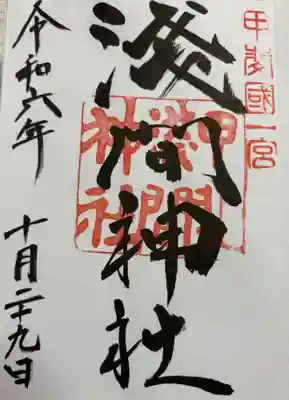 甲斐國一宮
淺間神社
令和六年
十月二十九日